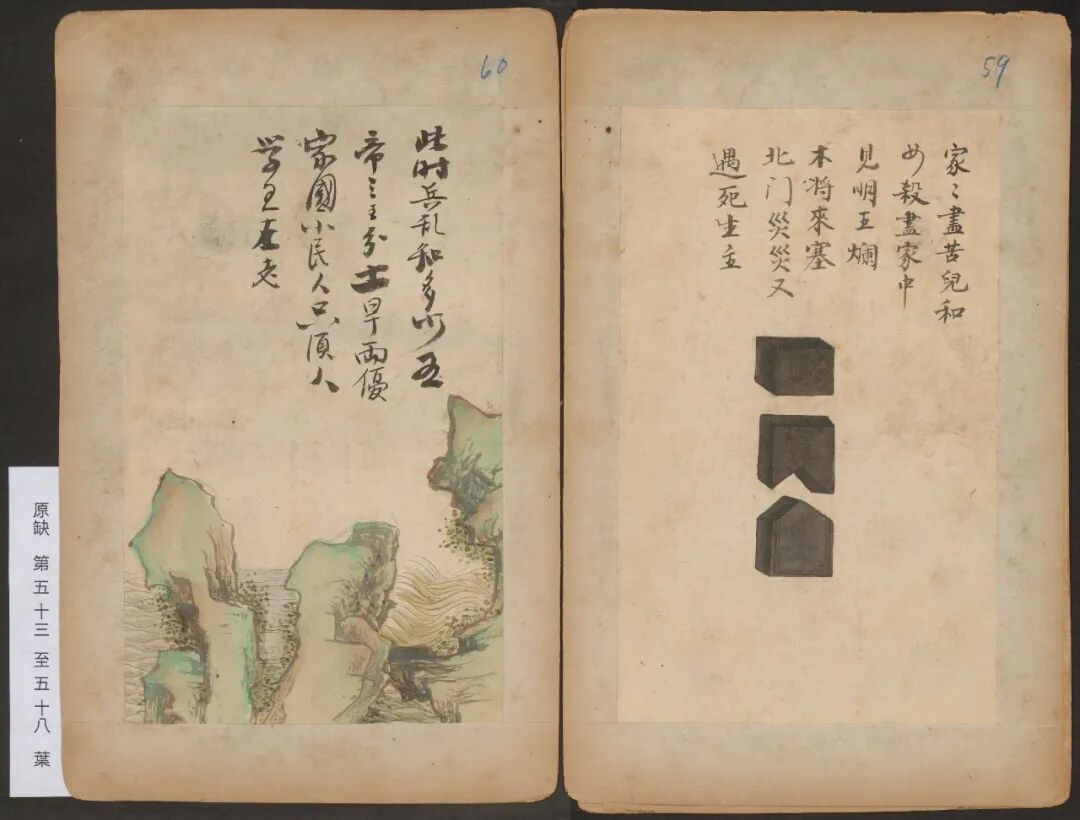 59
家〻盡苦兒和
女殺盡家中
見明王爛
木将來塞
北门災災又
遇死生主
60
此时兵乱和多少五
帝三王分士旱雨優
家國小民人口頂人
学王李老
原缺 第五十三至五十八 葉